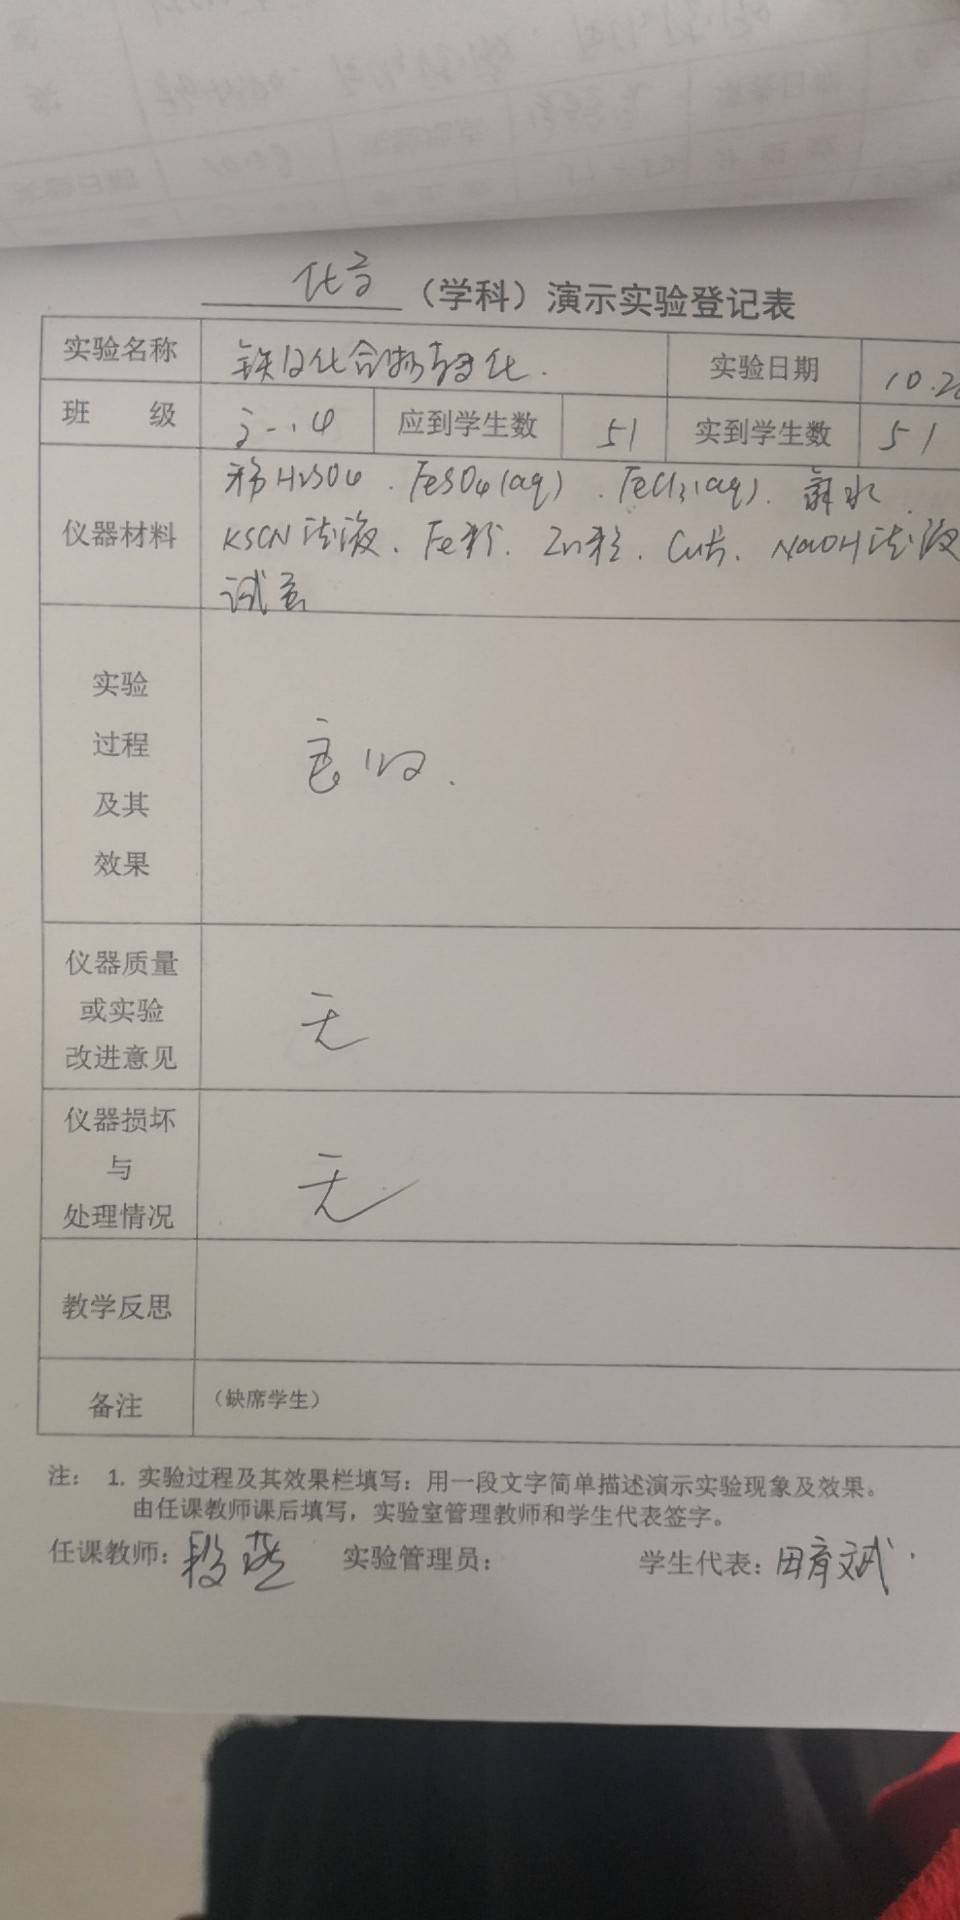 化学（学科）演示实验登记表
实验名称 铁及化合物转化. 实验日期 10.2
班 级 应到学生数 51 实到学生数 51
稀H2SO4. FeSO4(aq). FeCl3(aq). 氯水
仪器材料 KSCN溶液. Fe粉. Zn粒. Cu片. NaOH溶液
试管
实验
过程
及其
效果
良好.
仪器质量
或实验
改进意见
无
仪器损坏
与
处理情况
无
教学反思
备注 （缺席学生）
注： 1. 实验过程及其效果栏填写：用一段文字简单描述演示实验现象及效果。
由任课教师课后填写，实验室管理教师和学生代表签字。
任课教师：段燕 实验管理员： 学生代表：田育斌